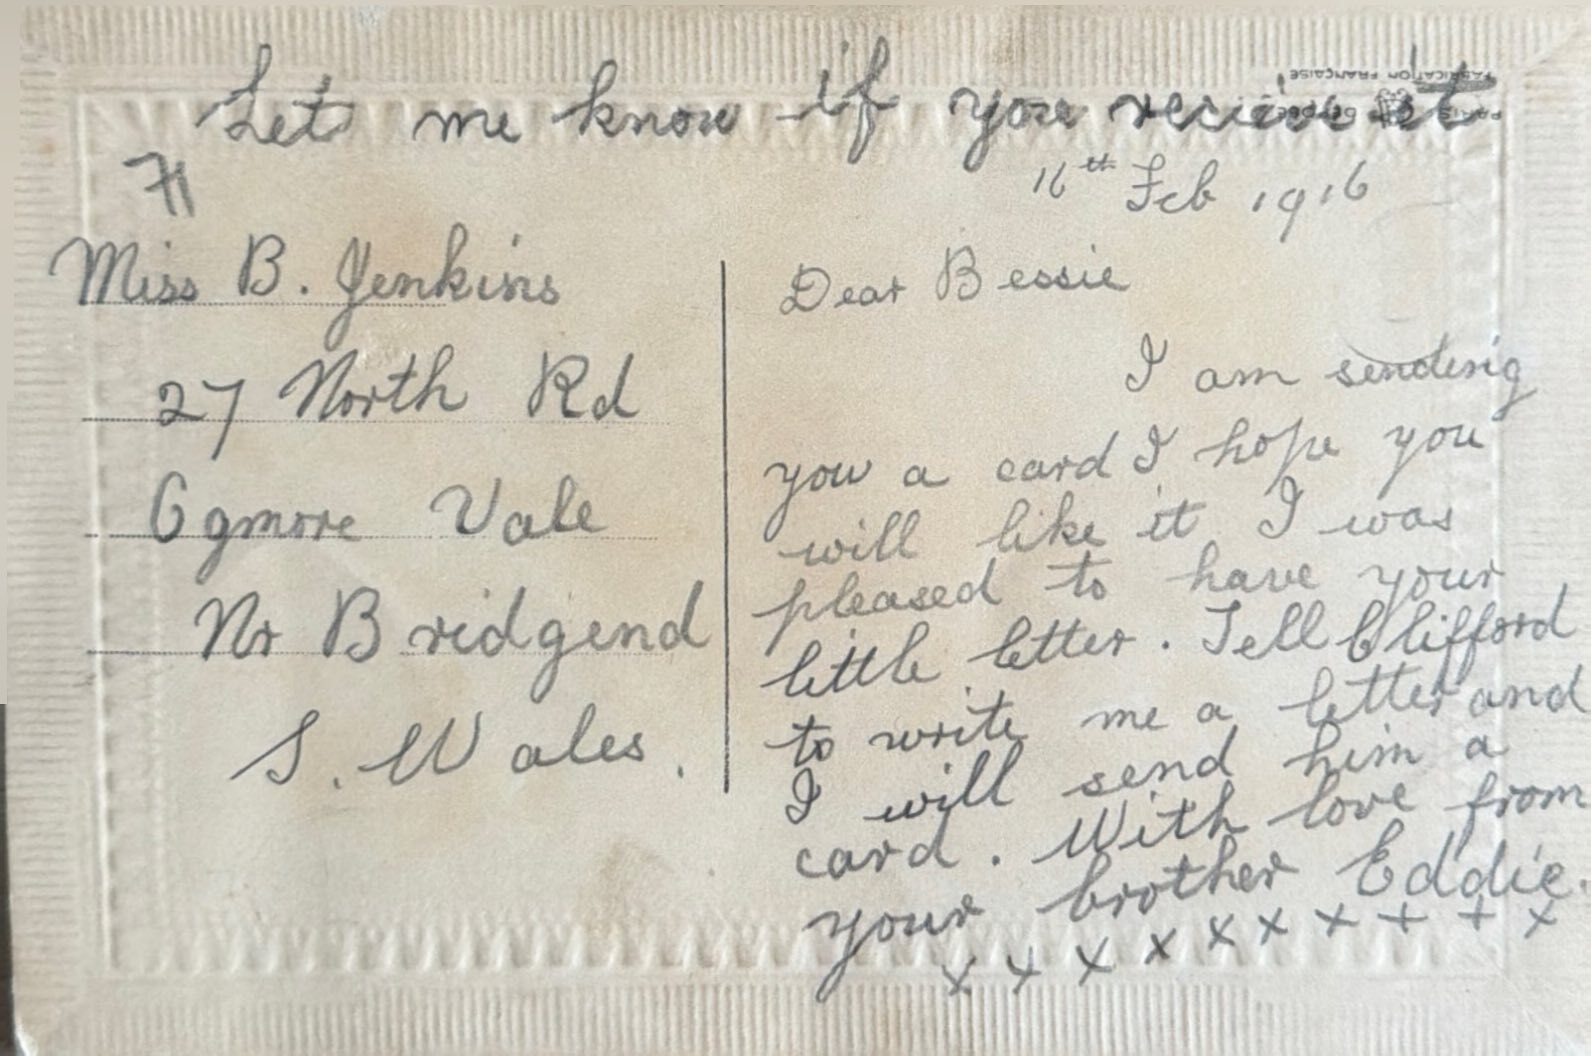 Let me know if you recieve it
FABRICATION FRANÇAISE
PARIS
71
16th Feb 1916
Miss B. Jenkins
27 North Rd
Ogmore Vale
Nr Bridgend
S. Wales.
Dear Bessie
I am sending
you a card I hope you
will like it I was
pleased to have your
little letter. Tell Clifford
to write me a letter and
I will send him a
card. With love from
your brother Eddie.
x x x x x x x + + x